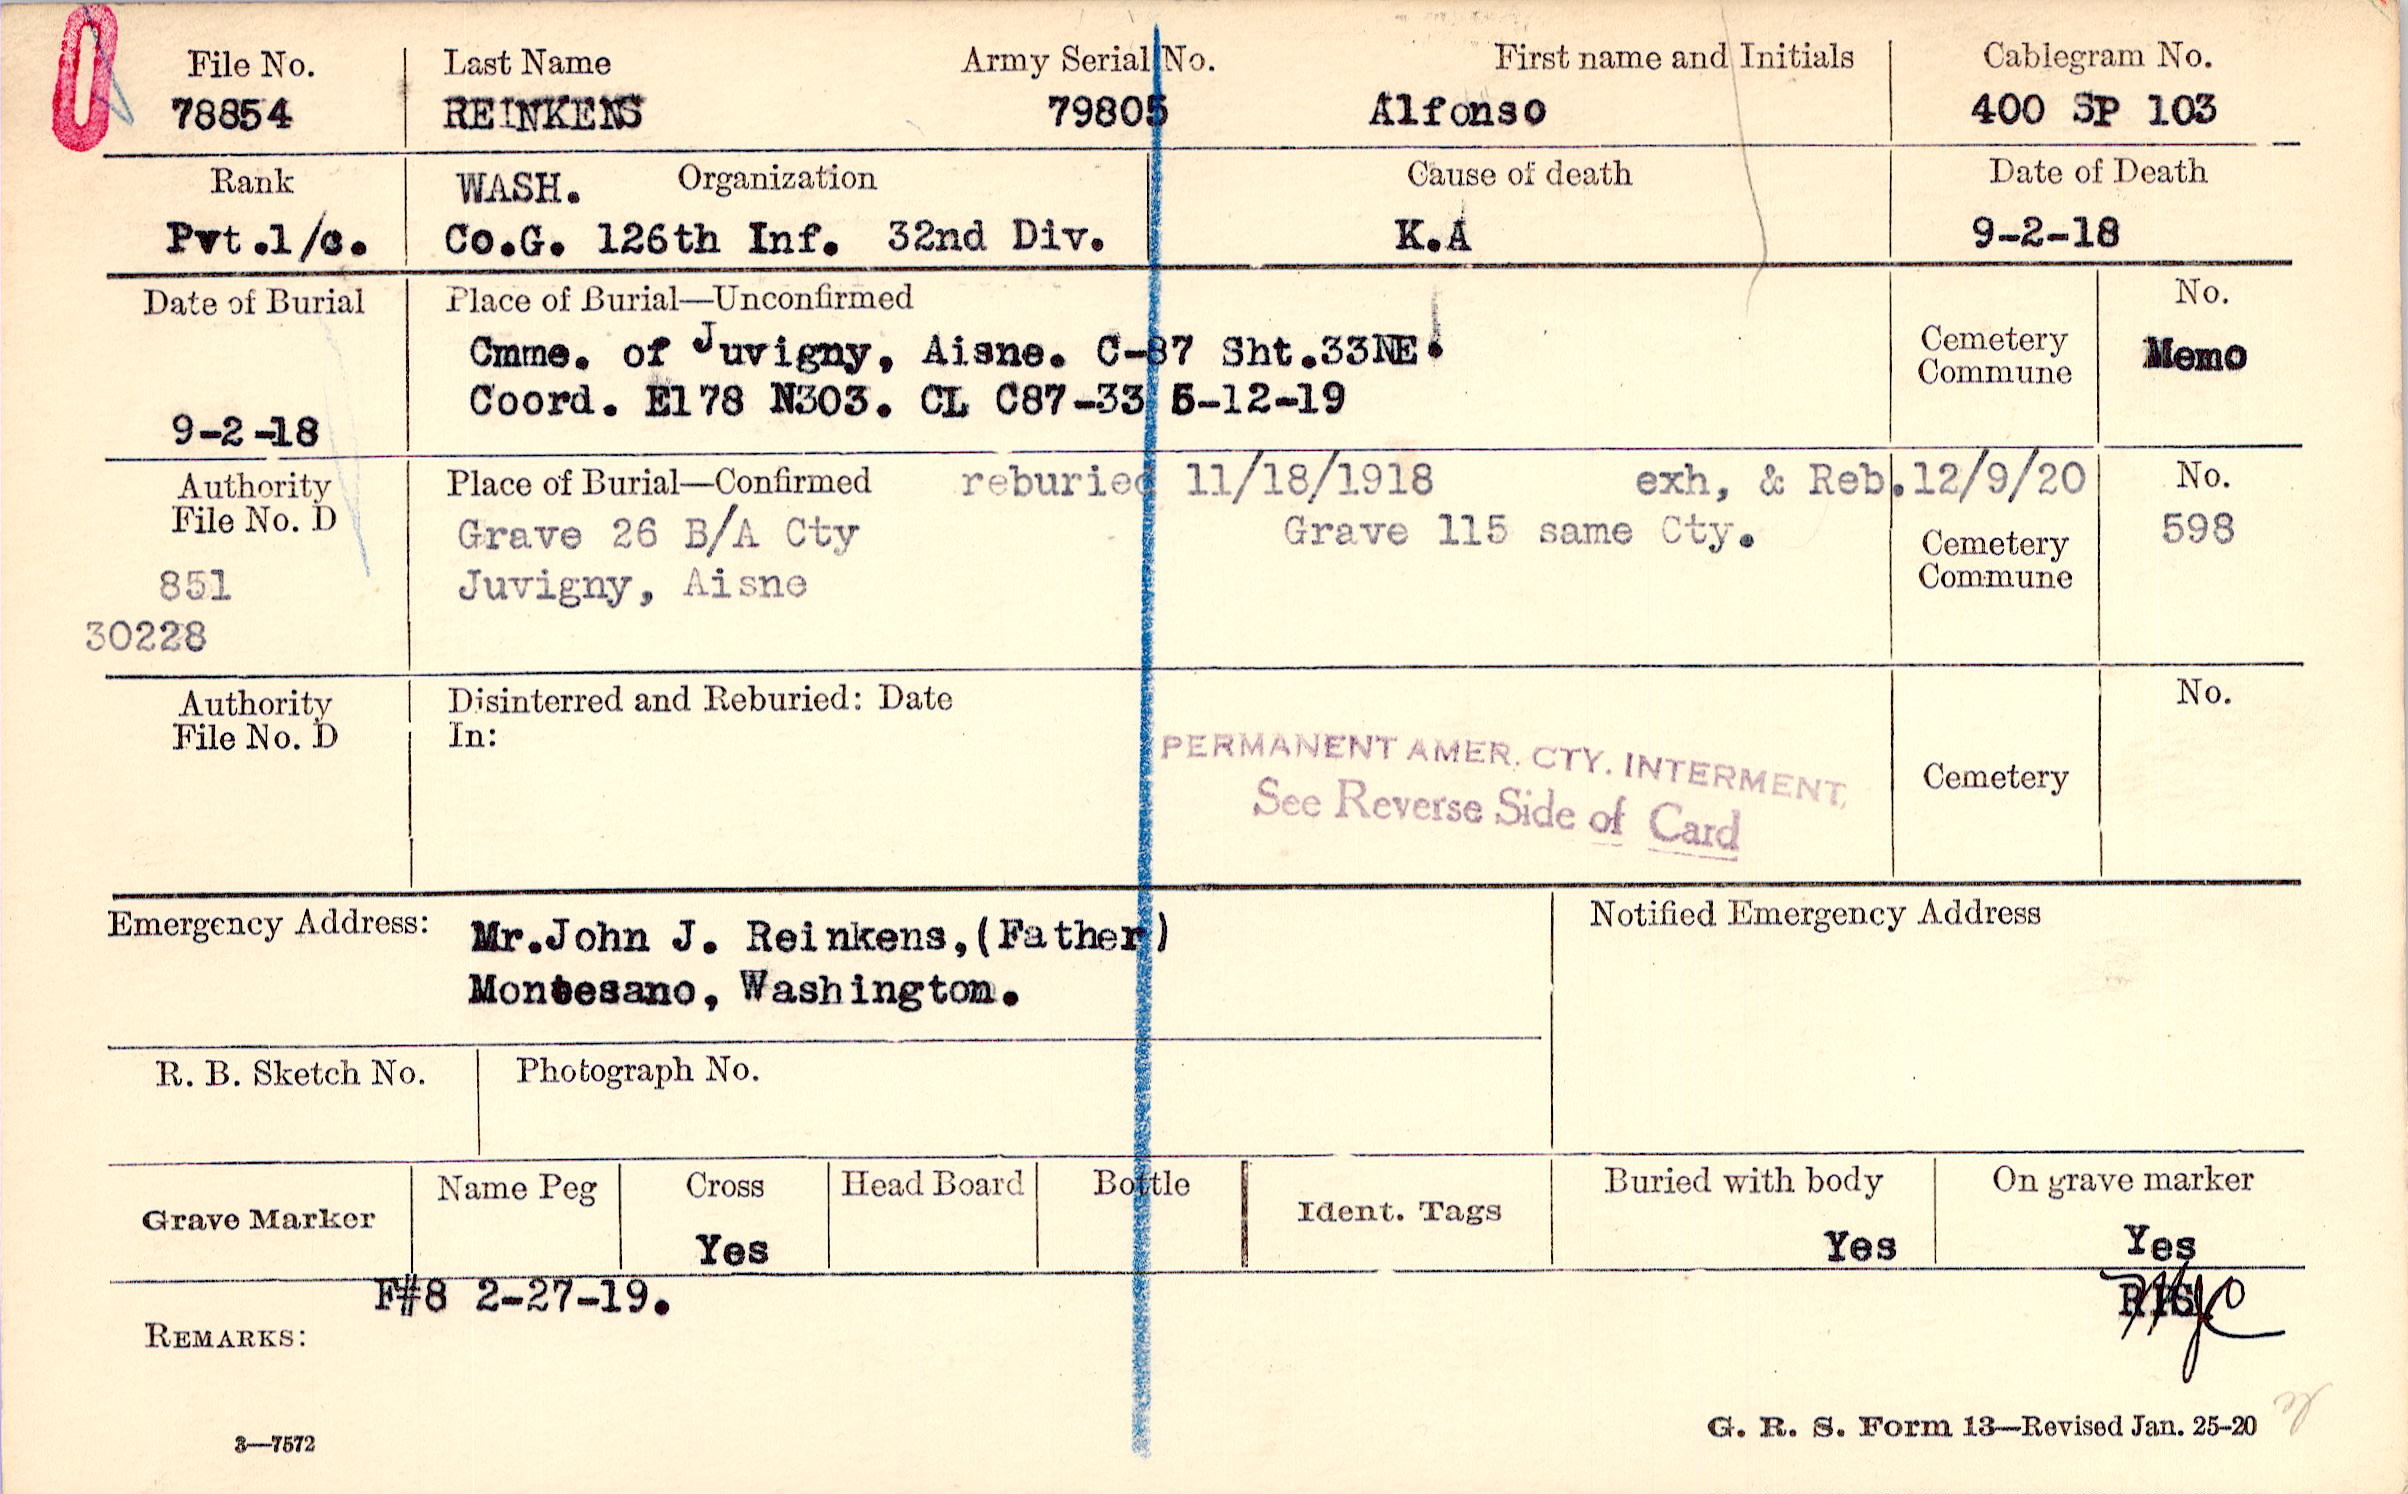 File No. Last Name Army Serial No. First name and Initials Cablegram No.
78854 REINKENS 79805 Alfonso 400 SP 103
Rank WASH. Organization Cause of death Date of Death
Pvt.1/c. Co.G. 126th Inf. 32nd Div. K.A 9-2-18
Date of Burial Place of Burial—Unconfirmed No.
Cmme. of Juvigny, Aisne. C-87 Sht.33NE. Cemetery Commune Memo
Coord. E178 N303. CL C87-33 5-12-19
9-2-18
Authority File No. D Place of Burial—Confirmed reburied 11/18/1918 exh, & Reb.12/9/20 No.
Grave 26 B/A Cty Grave 115 same Cty. Cemetery Commune 598
851 Juvigny, Aisne
30228
Authority Disinterred and Reburied: Date No.
File No. D In:
PERMANENT AMER. CTY. INTERMENT, Cemetery
See Reverse Side of Card
Emergency Address: Mr.John J. Reinkens,(Father) Notified Emergency Address
Montesano, Washington.
R. B. Sketch No. Photograph No.
Grave Marker Name Peg Cross Head Board Bottle Ident. Tags Buried with body On grave marker
Yes Yes Yes
F#8 2-27-19.
REMARKS:
3—7572 G. R. S. Form 13—Revised Jan. 25-20